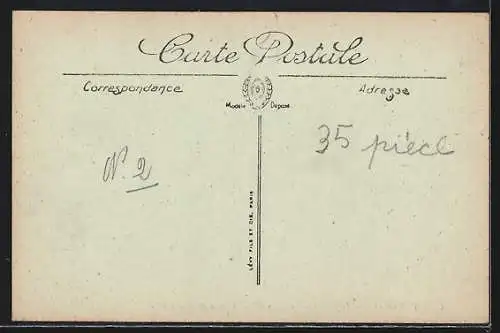 Carte Postale
Correspondance
Adresse
Modèle Déposé
35 pièce
N. 2
LÉVY FILS ET CIE, PARIS